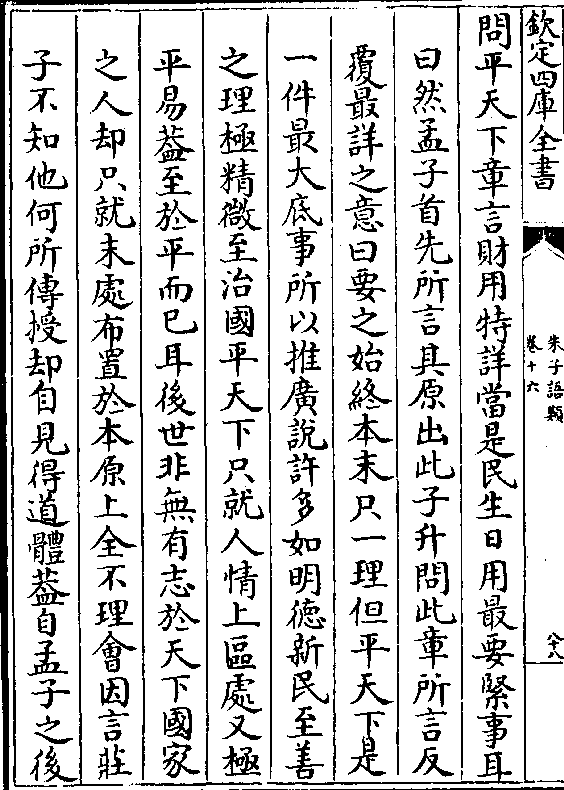 欽定四庫全書
朱子語類
卷十六
八十八
問平天下章言財用特詳當是民生日用最要緊事耳
曰然孟子首先所言其原出此子升問此章所言反
覆最詳之意曰要之始終本末只一理但平天下是
一件最大底事所以推廣說許多如明德新民至善
之理極精微至治國平天下只就人情上區處又極
平易葢至於平而已耳後世非無有志於天下國家
之人却只就末處布置於本原上全不理會因言莊
子不知他何所傳授却自見得道體葢自孟子之後